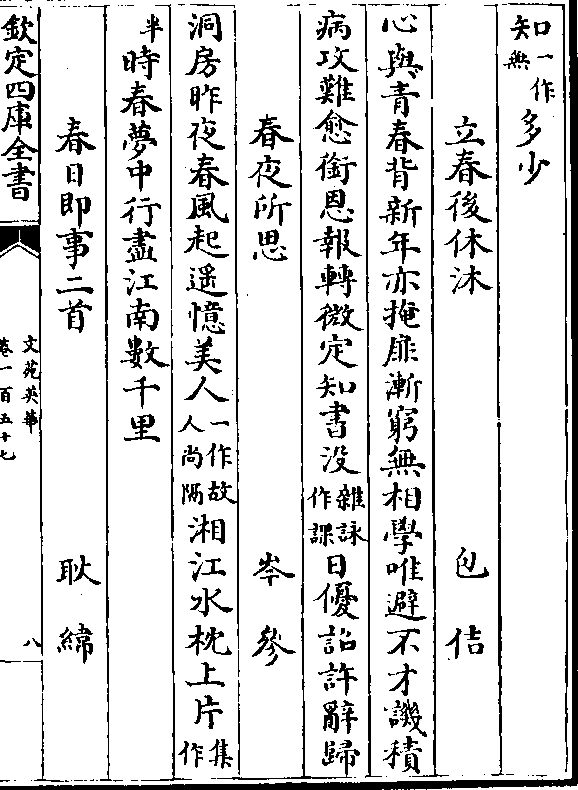 知一作無多少
立春後休沐　包佶
心與青春背新年亦掩扉漸窮無相學唯避不才譏積
病攻難愈銜恩報轉微定知書沒雜詠作課日優詔許辭歸
春夜所思　岑參
洞房昨夜春風起遥憶美人一作故人尚隔湘江水枕上片集作
半時春夢中行盡江南數千里
春日即事二首　耿緯
欽定四庫全書
文苑英華
卷一百五十七
八